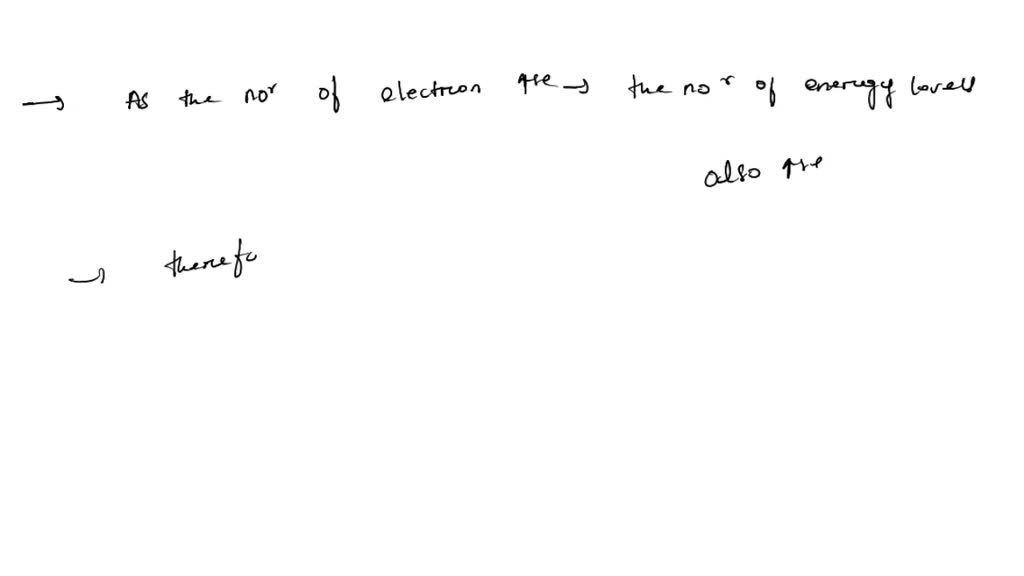 → As the noʳ of electron ↑se → the noʳ of energy levels
also ↑se
→ therefo